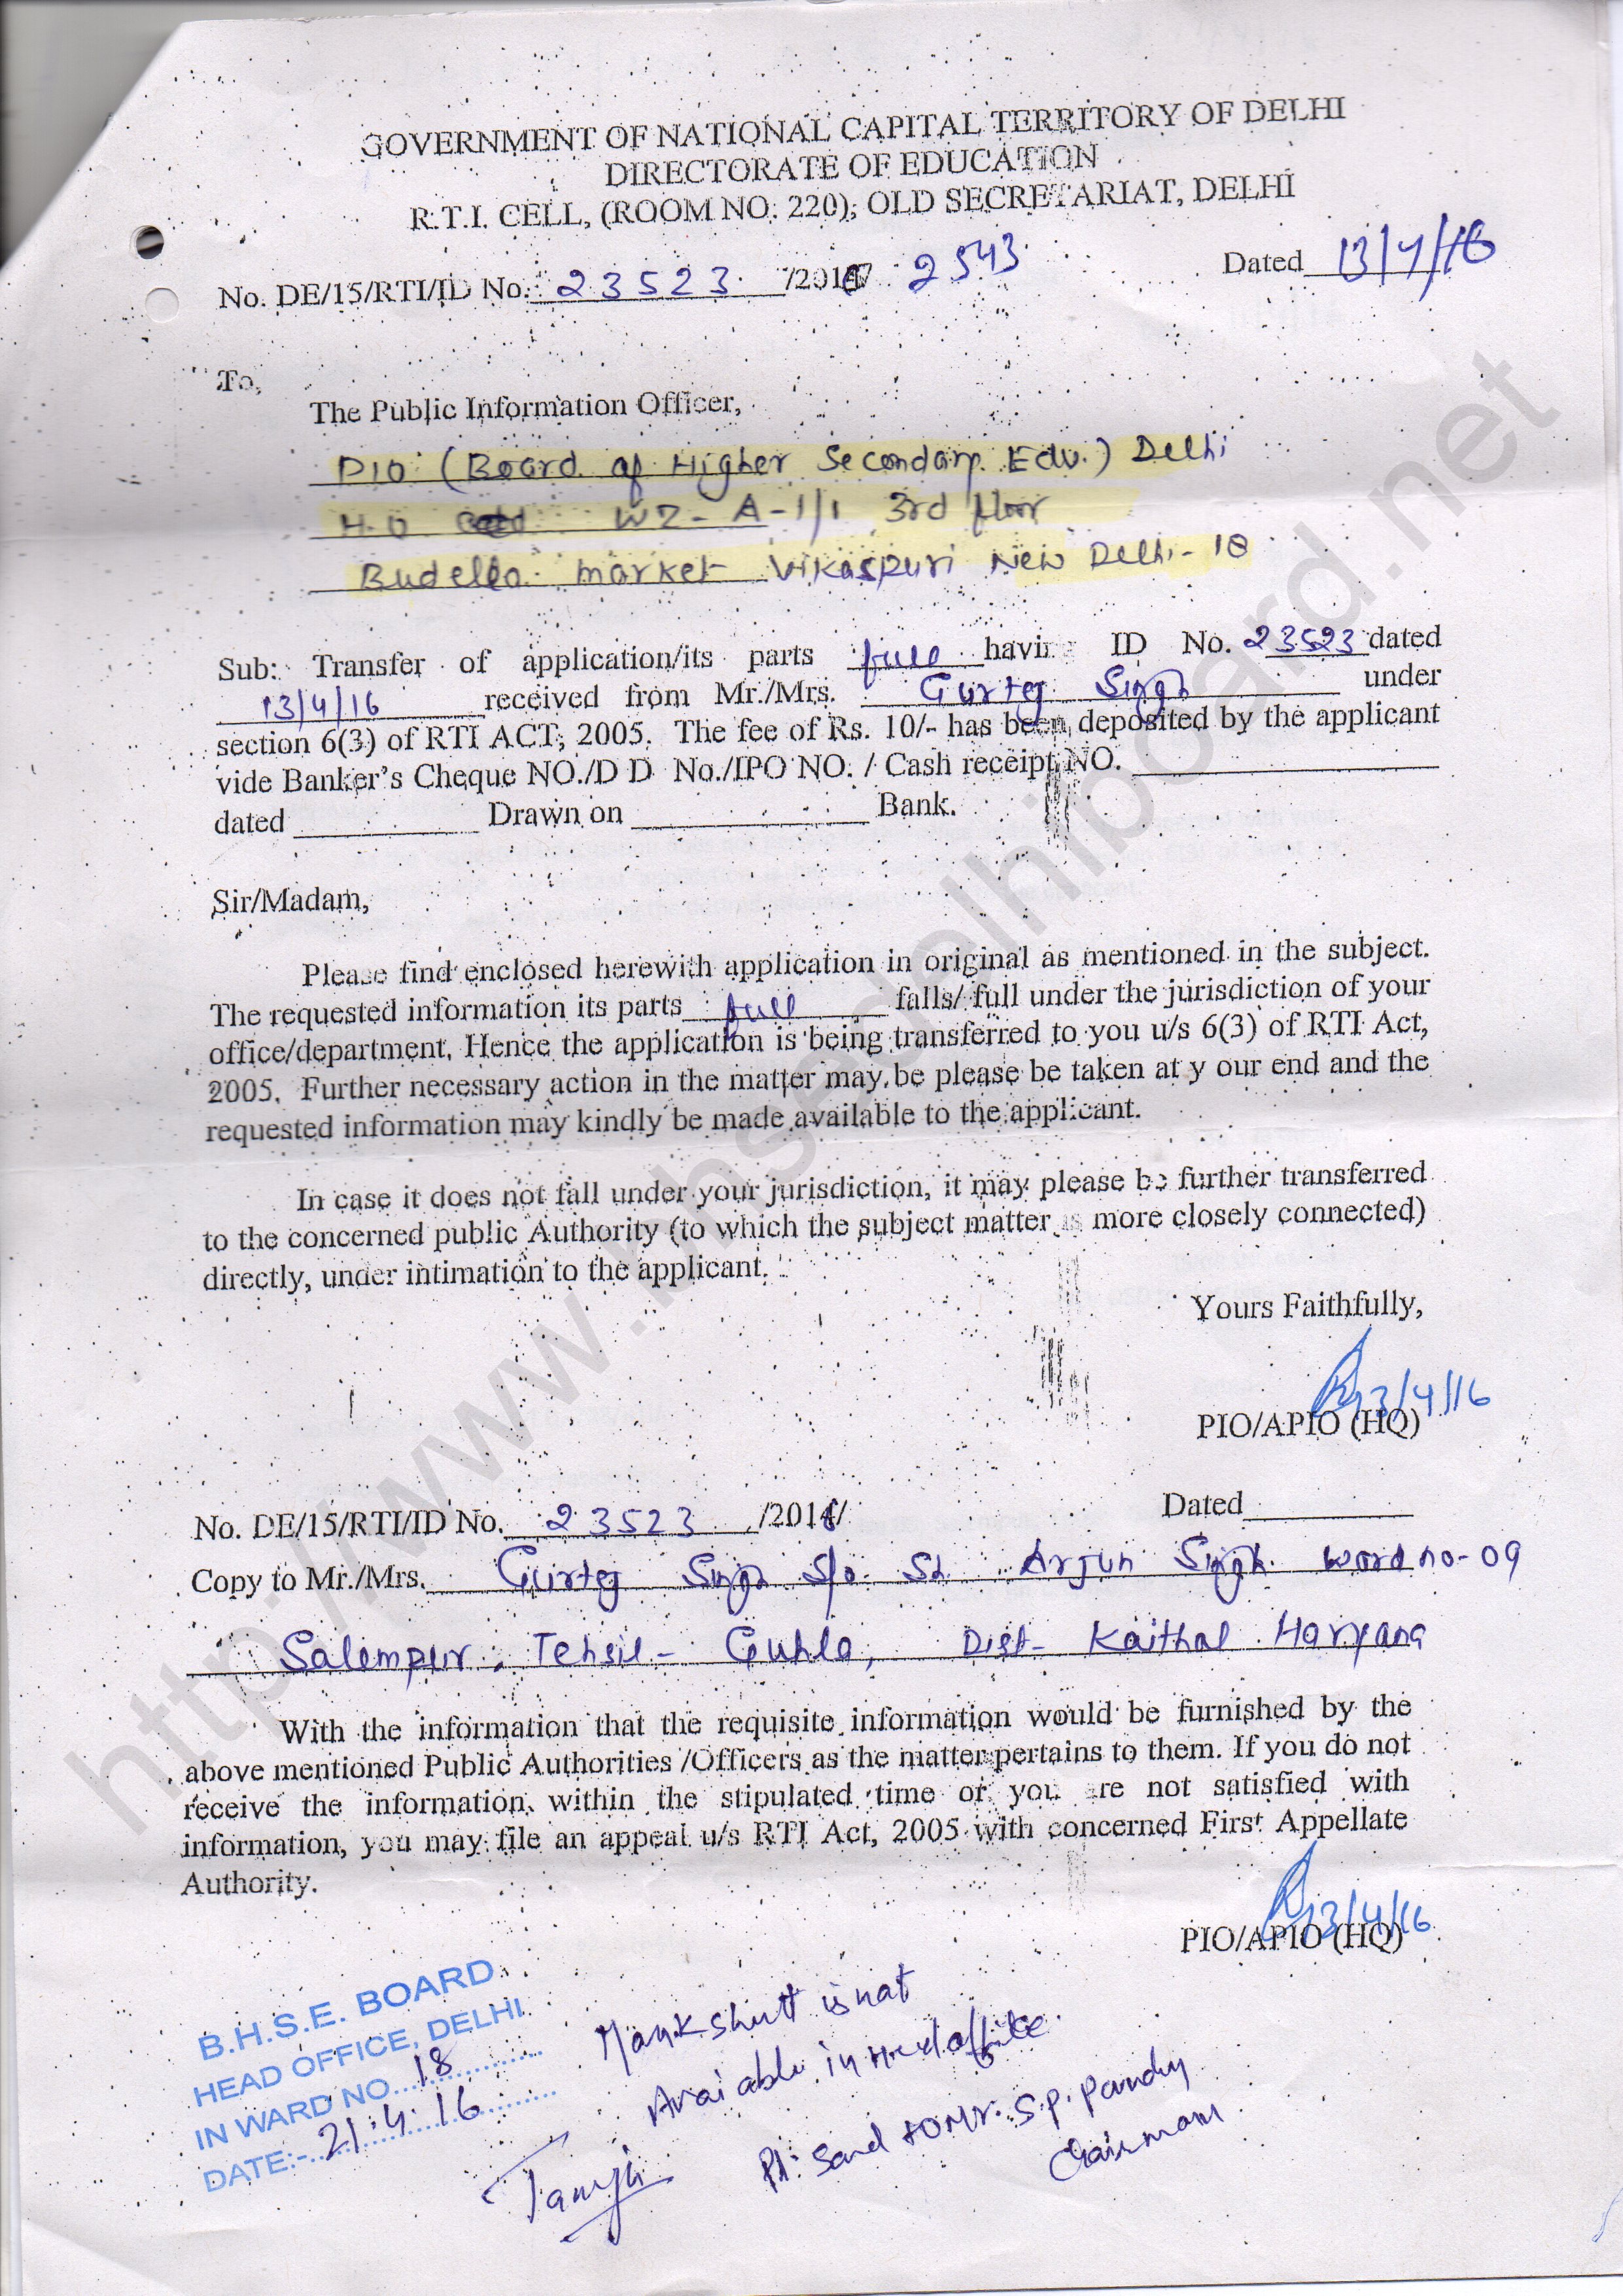 GOVERNMENT OF NATIONAL CAPITAL TERRITORY OF DELHI
DIRECTORATE OF EDUCATION
R.T.I. CELL, (ROOM NO. 220), OLD SECRETARIAT, DELHI
No. DE/15/RTI/ID No. 23523 /2016/ 2543 Dated 13/4/16
To,
The Public Information Officer,
PIO (Board of Higher Secondary Edu.) Delhi
H.O WZ- A-1/1 3rd floor
Budella market Vikaspuri New Delhi-18
Sub: Transfer of application/its parts full having ID No. 23523 dated
13/4/16 received from Mr./Mrs. Gurtej Singh under
section 6(3) of RTI ACT, 2005. The fee of Rs. 10/- has been deposited by the applicant
vide Banker's Cheque NO./D D No./IPO NO. / Cash receipt NO.
dated Drawn on Bank.
Sir/Madam,
Please find enclosed herewith application in original as mentioned in the subject.
The requested information its parts full falls/ full under the jurisdiction of your
office/department. Hence the application is being transferred to you u/s 6(3) of RTI Act,
2005. Further necessary action in the matter may be please be taken at y our end and the
requested information may kindly be made available to the applicant.
In case it does not fall under your jurisdiction, it may please be further transferred
to the concerned public Authority (to which the subject matter is more closely connected)
directly, under intimation to the applicant.
Yours Faithfully,
13/4/16
PIO/APIO (HQ)
No. DE/15/RTI/ID No. 23523 /2016/ Dated
Copy to Mr./Mrs. Gurtej Singh S/o Sh Arjun Singh ward no-09
Salempur, Tehsil- Guhla, Dist- Kaithal Haryana
With the information that the requisite information would be furnished by the
above mentioned Public Authorities /Officers as the matter pertains to them. If you do not
receive the information within the stipulated time or you are not satisfied with
information, you may file an appeal u/s RTI Act, 2005 with concerned First Appellate
Authority.
13/4/16
PIO/APIO (HQ)
B.H.S.E. BOARD
HEAD OFFICE, DELHI
IN WARD NO. 18
DATE:- 21.4.16
is not
in Head office
Pl. Send to Mr. S.P. Pandey
Chairman
http://www.bhsedelhiboard.net